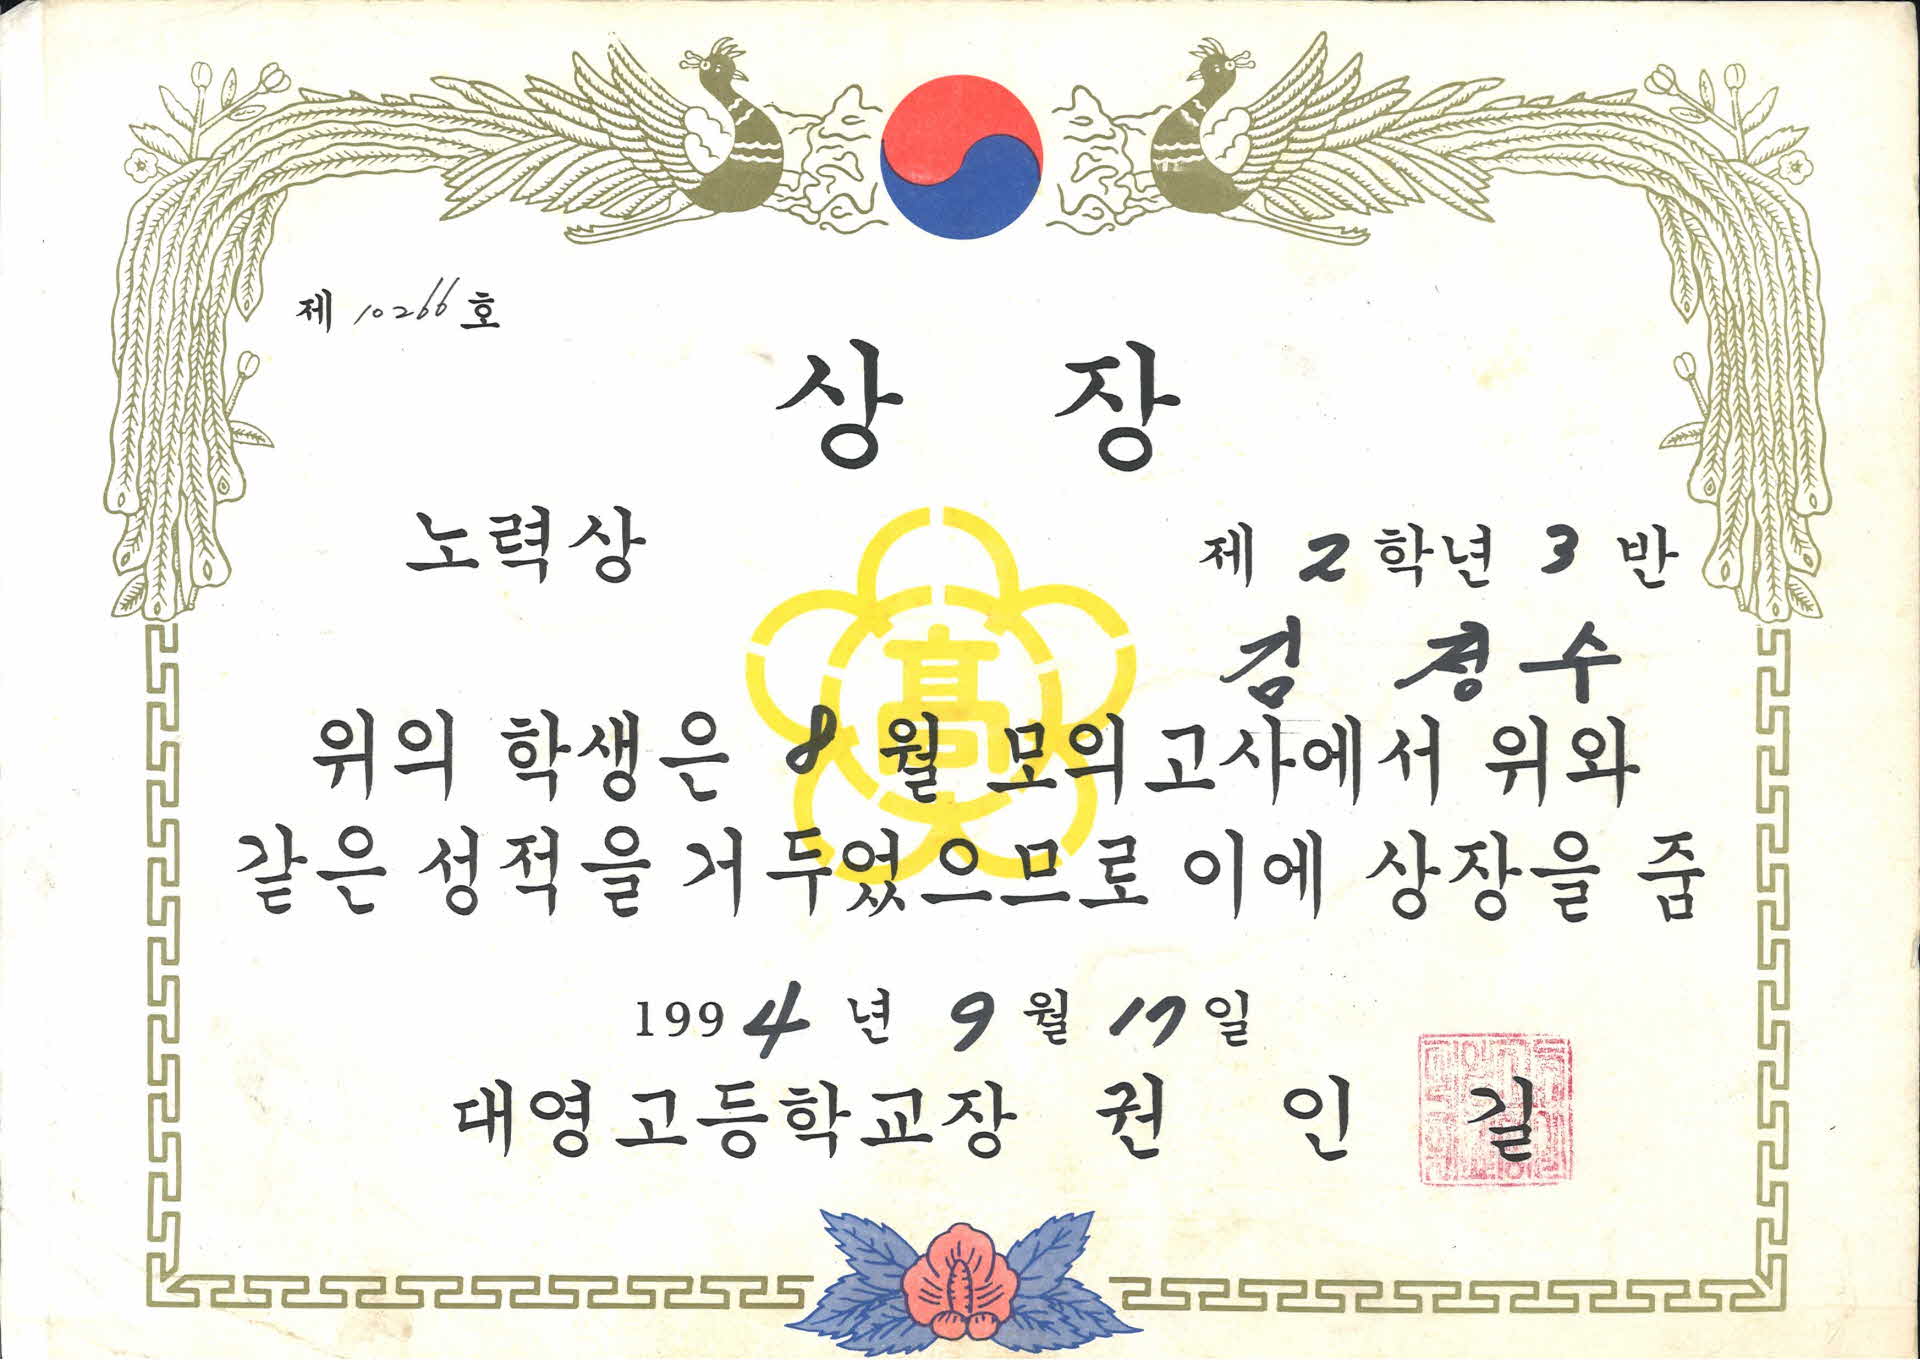 제 10266 호
상 장
노력상
제 2 학년 3 반
김 경 수
高
위의 학생은 8 월 모의고사에서 위와
같은 성적을 거두었으므로 이에 상장을 줌
1994 년 9 월 17 일
대영고등학교장 권 인 길